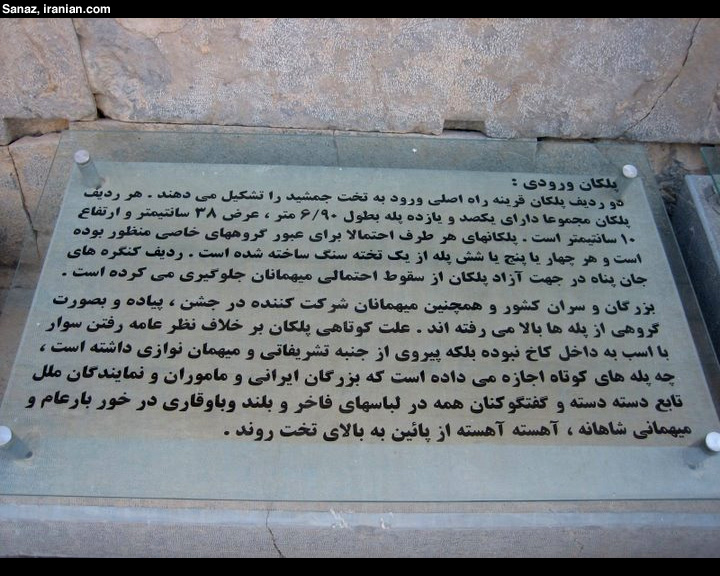 Sanaz, iranian.com
پلکان ورودی :
دو ردیف پلکان قرینه راه اصلی ورود به تخت جمشید را تشکیل می دهند . هر ردیف
پلکان مجموعا دارای یکصد و یازده پله بطول ۶/۹۰ متر ، عرض ۳۸ سانتیمتر و ارتفاع
۱۰ سانتیمتر است . پلکانهای هر طرف احتمالا برای عبور گروههای خاصی منظور بوده
است و هر چهار یا پنج یا شش پله از یک تخته سنگ ساخته شده است . ردیف کنگره های
جان پناه در جهت آزاد پلکان از سقوط احتمالی میهمانان جلوگیری می کرده است .
بزرگان و سران کشور و همچنین میهمانان شرکت کننده در جشن ، پیاده و بصورت
گروهی از پله ها بالا می رفته اند . علت کوتاهی پلکان بر خلاف نظر عامه رفتن سوار
با اسب به داخل کاخ نبوده بلکه پیروی از جنبه تشریفاتی و میهمان نوازی داشته است ،
چه پله های کوتاه اجازه می داده است که بزرگان ایرانی و ماموران و نمایندگان ملل
تابع دسته دسته و گفتگوکنان همه در لباسهای فاخر و بلند وباوقاری در خور بارعام و
میهمانی شاهانه ، آهسته آهسته از پائین به بالای تخت روند .